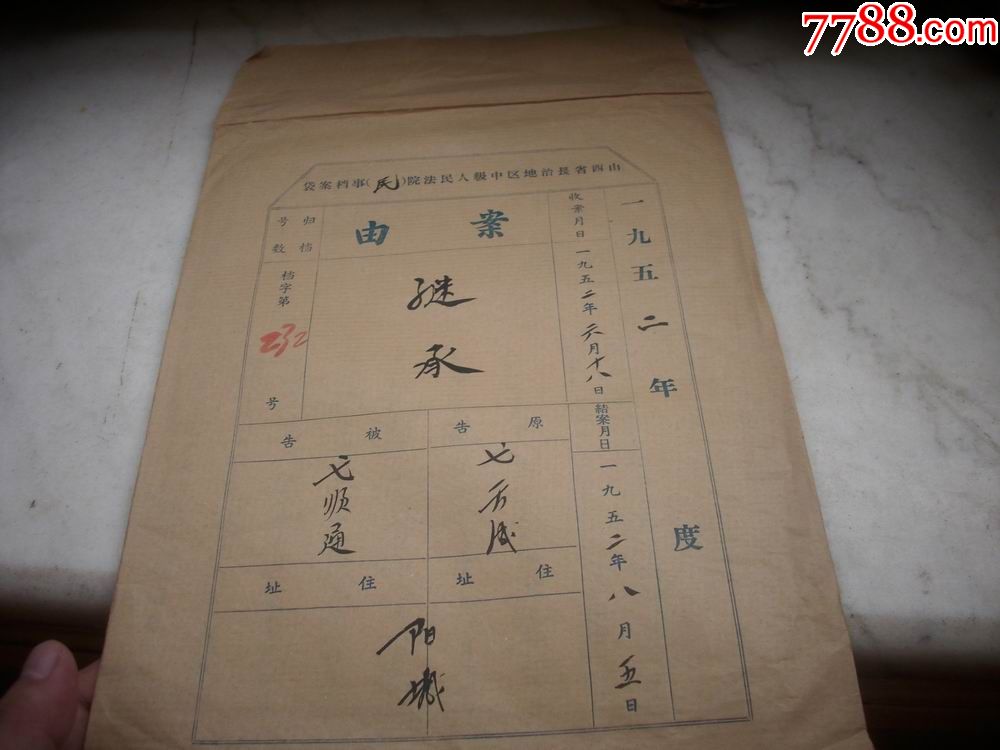 7788.com
山西省長治地区中級人民法院(民)事档案袋
一九五二年度
收案月日
一九五二年六月十八日
結案月日
一九五二年八月五日
案由
継承
归档号数
档字第
232
号
原告
被告
七顺通
住址
住址
阳城